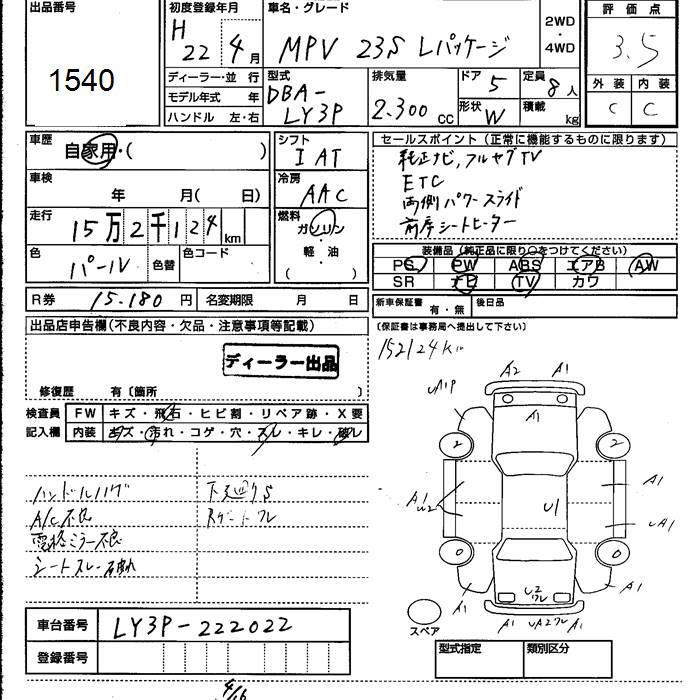 出品番号
1540
初度登録年月
H 22年4月
車名・グレード
MPV 23S Lパッケージ
2WD
・
4WD
評価点
3.5
外装 内装
C C
ディーラー・並 行
モデル年式 年
ハンドル 左・右
型式
DBA-
LY3P
排気量
2.300 cc
ドア 5
形状 W
定員 8人
積載 kg
車歴
自家用・( )
車検
年 月( 日)
走行
15万2千124km
色 パール 色替 色コード
R券 15.180円 名変期限 月 日
シフト
IAT
冷房
AAC
燃料
ガソリン
軽・油
( )
セールスポイント(正常に機能するものに限ります)
純正ナビ,フルセグTV
ETC
両側パワースライド
前席シートヒーター
装備品(純正品に限り○をつけてください)
PS PW ABS エアB AW
SR ナビ TV カワ
新車保証書 有・無 後日品
(保証書は事務局へ提出して下さい)
152124km
出品店申告欄(不良内容・欠品・注意事項等記載)
ディーラー出品
修復歴 有〔箇所 〕
検査員 FW キズ・飛石・ヒビ割・リペア跡・X要
記入欄 内装 キズ・汚れ・コゲ・穴・スレ・キレ・破レ
ハンドルハゲ
A/C不良
電格ミラー不良
シートスレ・破れ
下廻りS
A2 A1
UA1P
A1
2 2
A1
U2
U1
A1
UA1
0 0
A1
U2
ワレ
A1
A1 UA2ワレ A1
スペア
車台番号 LY3P-222022
登録番号
型式指定 類別区分
4/16